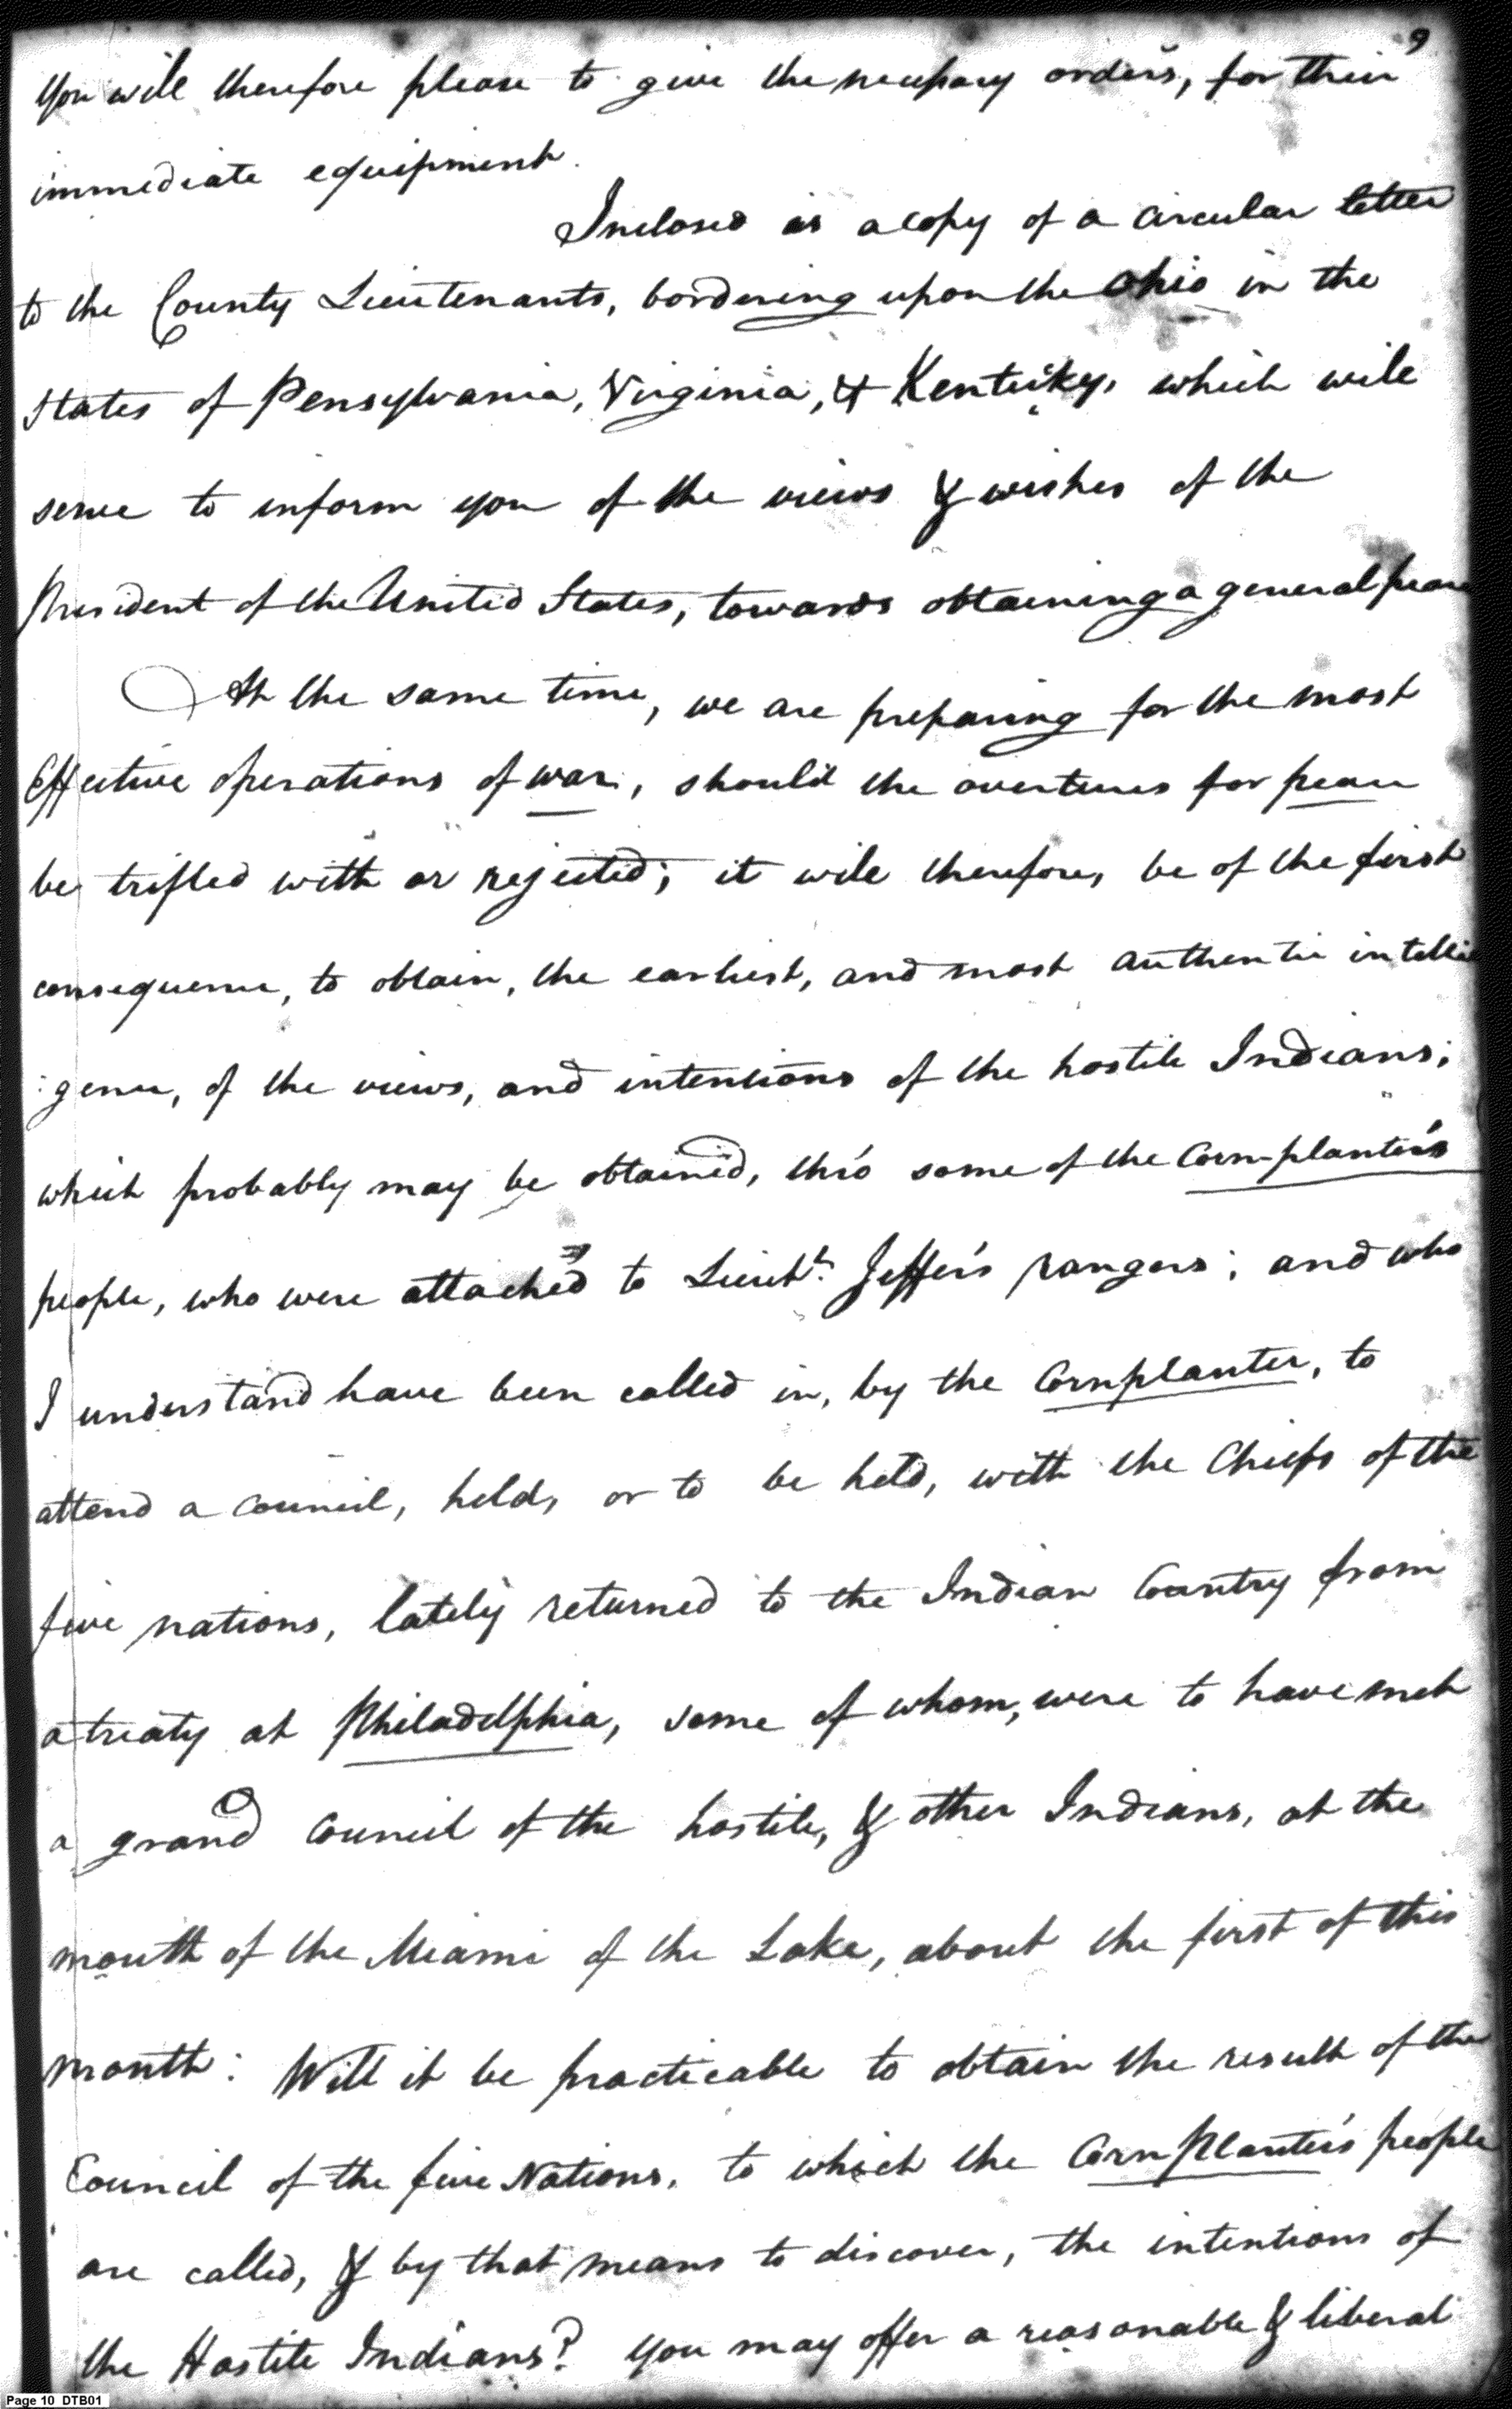 9
You will therefore please to give the necessary orders, for their
immediate equipment.
Inclosed is a copy of a circular letter
to the County Lieutenants, bordering upon the Ohio in the
States of Pensylvania, Virginia, & Kentucky, which will
serve to inform you of the views & wishes of the
President of the United States, towards obtaining a general peace
At the same time, we are preparing for the most
Effective operations of war, should the overtures for peace
be trifled with or rejected; it will therefore, be of the first
consequence, to obtain, the earliest, and most authentic intelli
:gence, of the views, and intentions of the hostile Indians;
which probably may be obtained, thro' some of the Corn-planter's
people, who were attached to Lieut. Jeffer's rangers; and who
I understand have been called in, by the Cornplanter, to
attend a council, held, or to be held, with the Chiefs of the
five nations, lately returned to the Indian Country from
a treaty at Philadelphia, some of whom, were to have met
a grand Council of the hostile, & other Indians, at the
mouth of the Miami of the Lake, about the first of this
month: Will it be practicable to obtain the result of the
Council of the five Nations, to which the CornPlanter's people
are called, & by that means to discover, the intentions of
the Hostile Indians? You may offer a reasonable & liberal
Page 10 DTB01